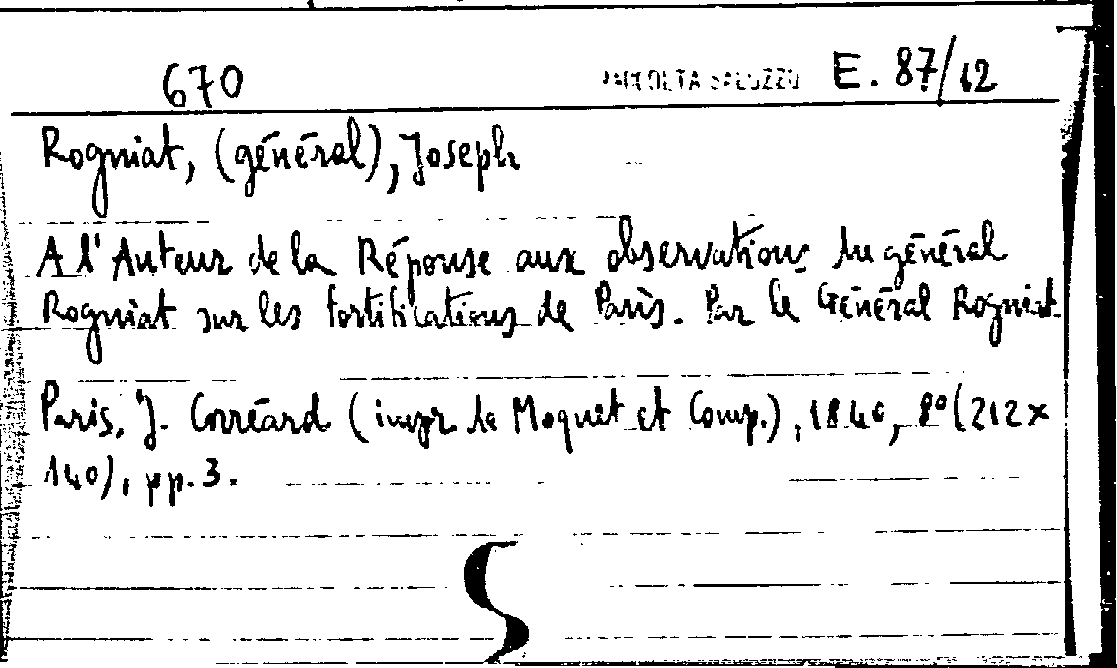 670 RACCOLTA SALUZZO E. 87/12
Rogniat, (général), Joseph
A l'Auteur de la Réponse aux observations du général
Rogniat sur les fortifications de Paris. Par le Général Rogniat.
Paris, J. Corréard (impr. de Moquet et Comp.), 1840, 8° (212x
140), pp. 3.